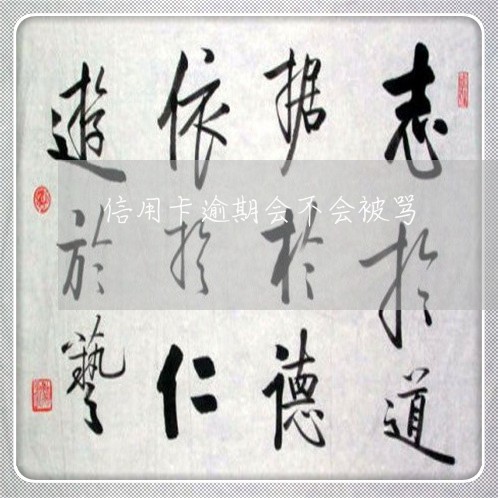 志於道
据於德
依於仁
遊於藝
信用卡逾期会不会被骂